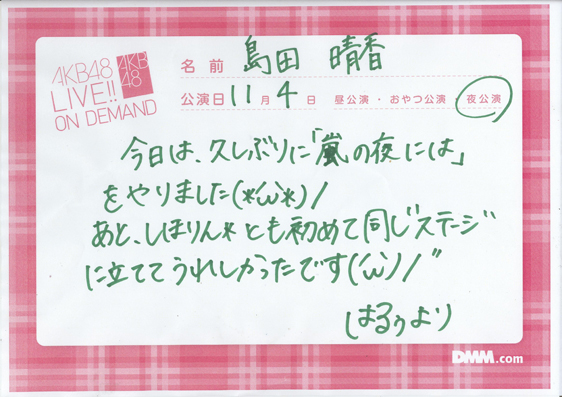 AKB48
LIVE!!
ON DEMAND
AKB
48
名前 島田 晴香
公演日 11月4日 昼公演・おやつ公演 夜公演
今日は、久しぶりに「嵐の夜には」
をやりました(*´ω`*)/
あと、しほりん*とも初めて同じ"ステージ"
に立ててうれしかったです(´ω`)/"
はるぅより
DMM.com